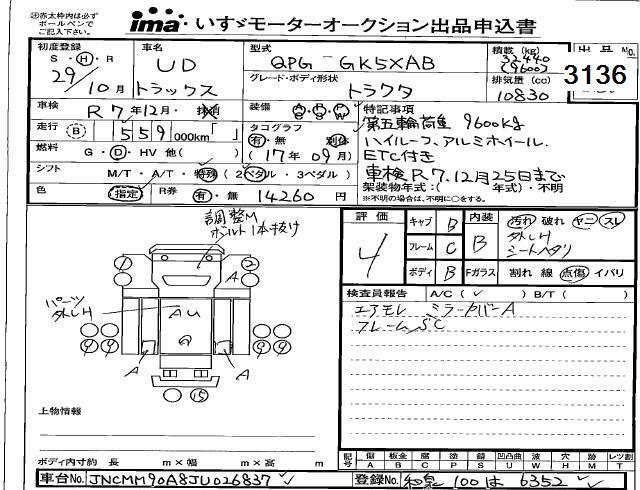 ㊟赤太枠内は必ず
ボールペンで
ご記入下さい。
ima いすゞモーターオークション出品申込書
初度登録 S・H・R 29年10月
車名 UD トラックス
型式 QPG-GK5XAB
グレード・ボディ形状 トラクタ
積載 (kg) 32440 (9600)
排気量 (cc) 10830
出品No.
3136
車検 R7年12月・抹消
装備
特記事項
走行 B 559000km「 」
タコグラフ 有・無 別体 (17年09月)
第五輪荷重 9600kg
ハイルーフ、アルミホイール、
ETC付き
車検R7.12月25日まで
燃料 G・D・HV 他( )
シフト M/T・A/T・特殊(2ペダル・3ペダル)
架装物年式:( 年式)・不明
※不明の場合は、不明に○をする。
色 指定 R券 有・無 14260円
調整M
ボルト1本抜け
評価 4
キャブ B
フレーム C
ボディ B
内装 B
汚れ 破れ ヤニ スレ
外しH
シートヘタリ
Fガラス 割れ 線 点傷 イバリ
検査員報告 A/C(✓) B/T( )
エアモレ ミラーカバーA
フレームSC
1 2
A
パーツ
外しH
AU
9 9 9 9
A A
15
上物情報
ボディ内寸約 長 m×幅 m×高 m
記号 傷 板金 腐 パテ 錆 凹凸曲 波 穴 跡 レツ割
A B C P S U W H M T
車台No. JNCMM90A8JU026837
登録No. 和泉 100 は 6352